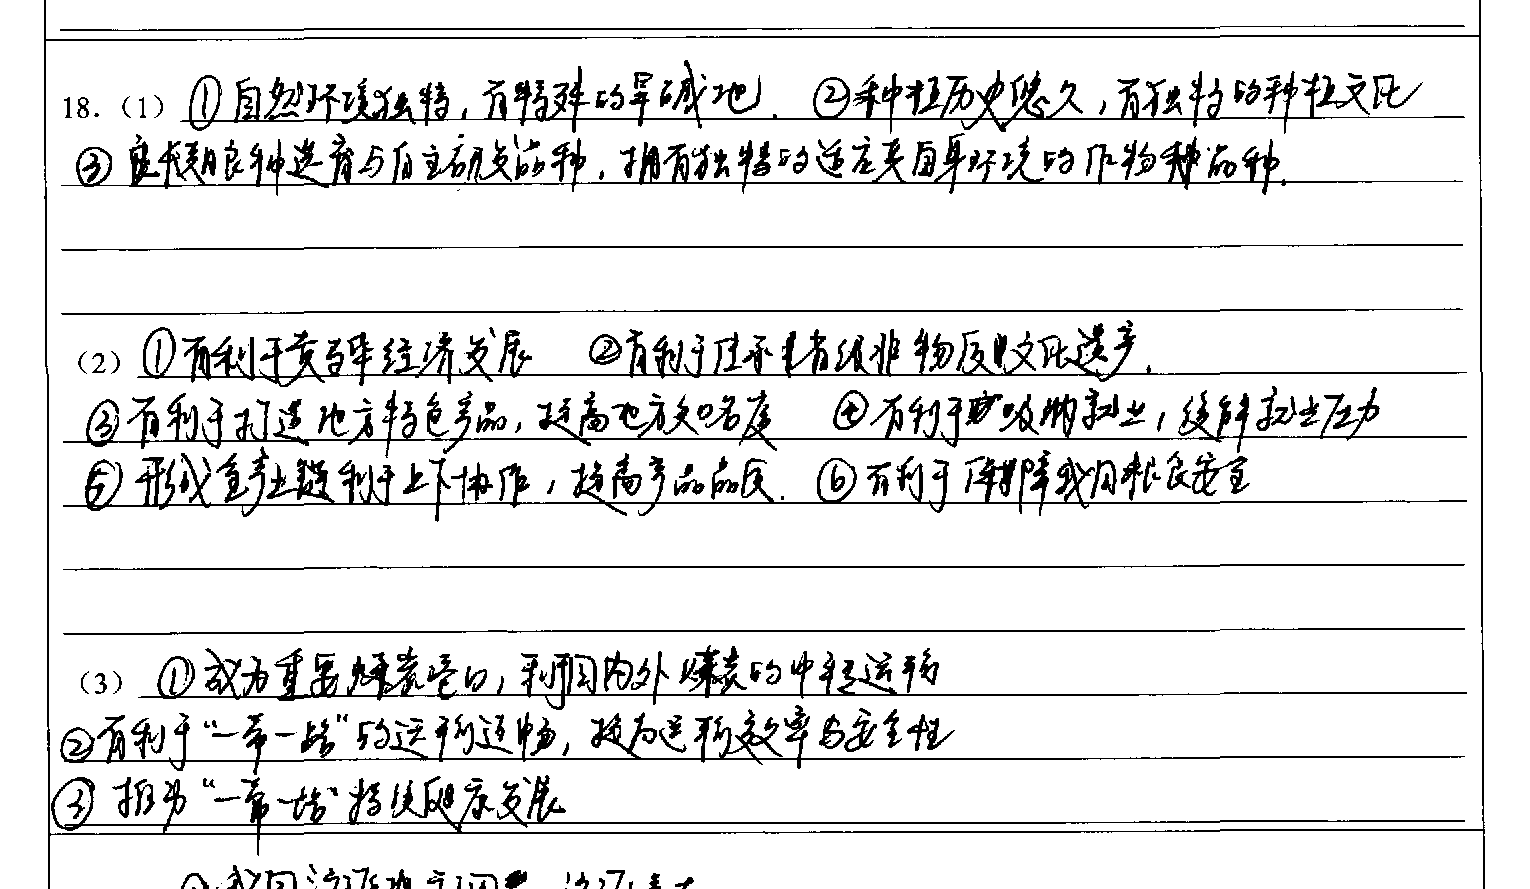 18.(1) ①自然环境独特，有特殊的旱碱地. ②种植历史悠久，有独特的种植文化
③ 长期良种选育与自主研发品种，拥有独特的适应其自身环境的作物品种.
(2) ①有利于黄骅经济发展 ②有利于省级非物质文化遗产.
③有利于打造地方特色产品，提高地方知名度 ④有利于吸纳就业，缓解就业压力
⑤形成全产业链利于上下协作，提高产品品质. ⑥有利于保障我国粮食安全
(3) ①成为重要煤炭港口，利于国内外煤炭的中转运输
②有利于“一带一路”的运输通畅，提高运输效率与安全性
③ “一带一路”持续健康发展